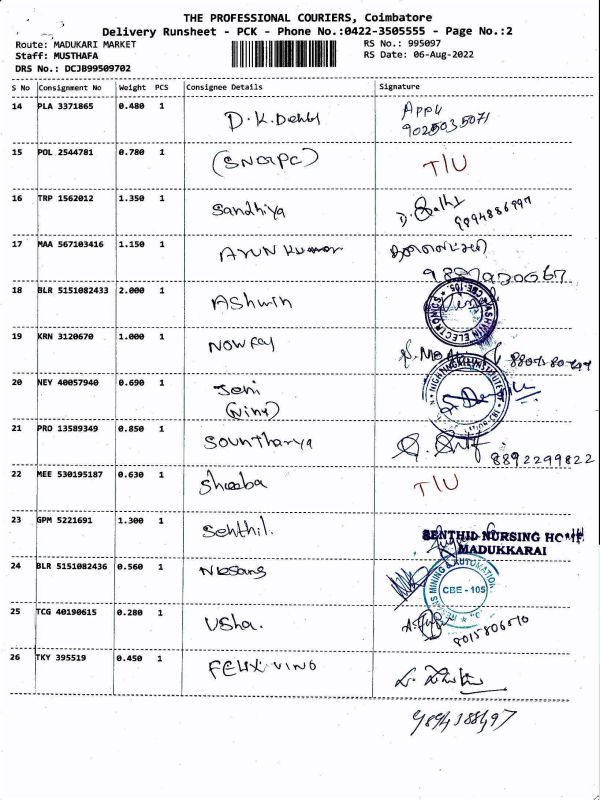 THE PROFESSIONAL COURIERS, Coimbatore
Delivery Runsheet - PCK - Phone No.:0422-3505555 - Page No.:2
Route: MADUKARI MARKET
RS No.: 995097
Staff: MUSTHAFA
RS Date: 06-Aug-2022
DRS No.: DCJB99509702
S No Consignment No Weight PCS Consignee Details Signature
14 PLA 3371865 0.480 1 D.K. Appu
9025035071
15 POL 2544781 0.780 1 T/U
16 TRP 1562012 1.350 1 Sandhiya
9894886997
17 MAA 567103416 1.150 1 Arun Kumar
18 BLR 5151082433 2.000 1 Ashwin
ASHWIN ELECTRONICS CBE-105.
19 KRN 3120670 1.000 1 Nowfal
20 NEY 40057940 0.690 1 Jeni
21 PRO 13589349 0.850 1 Sountharya
8892299822
22 MEE 530195187 0.630 1 Sheeba T/U
23 GPM 5221691 1.300 1 Senthil.
SENTHID NURSING HOME
MADUKKARAI
24 BLR 5151082436 0.560 1
MINING & AUTOMATION
CBE - 105
25 TCG 40190615 0.280 1 Usha.
8015806010
26 TKY 395519 0.450 1 FELIX VINO
9894388497